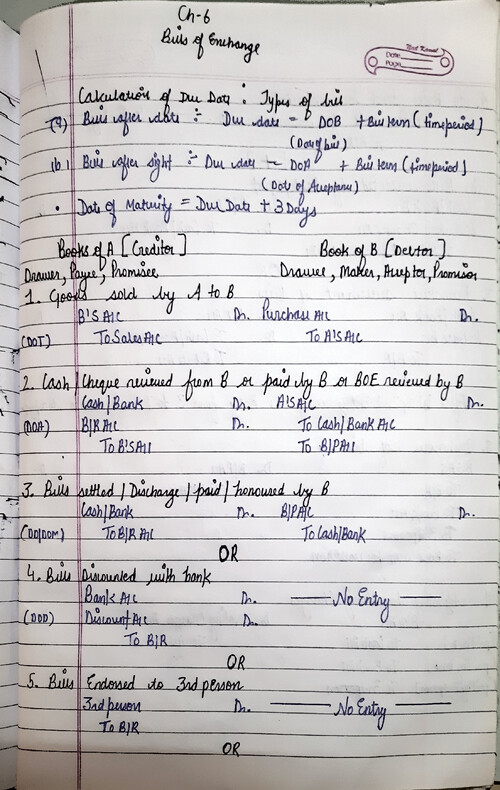 Ch-6
Bills of Exchange
Date
Page
Calculation of Due Date : Types of bill
(a) Bills after date :- Due date = DOB + Bill term (time period)
(Date of bill)
(b) Bills after sight :- Due date = DOA + Bill term (time period)
(Date of Acceptance)
• Date of Maturity = Due Date + 3 Days
Books of A [Creditor] Book of B [Debtor]
Drawer, Payee, Promisee Drawee, Maker, Acceptor, Promisor
1. Goods sold by A to B
B'S A/C Dr. Purchase A/C Dr.
(DOT) To Sales A/C To A'S A/C
2. Cash | Cheque recieved from B or paid by B or BOE recieved by B
Cash|Bank Dr. A'S A/C Dr.
(DOA) B|R A/C Dr. To Cash|Bank A/C
To B'S A/C To B|P A/C
3. Bills settled | Discharge | paid | honoured by B
Cash|Bank Dr. B|P A/C Dr.
(DD|DOM) To B|R A/C To Cash|Bank
OR
4. Bills Discounted with bank
Bank A/C Dr. —— No Entry ——
(DOD) Discount A/C Dr.
To B|R
OR
5. Bills Endorsed to 3rd person
3rd person Dr. —— No Entry ——
To B|R
OR